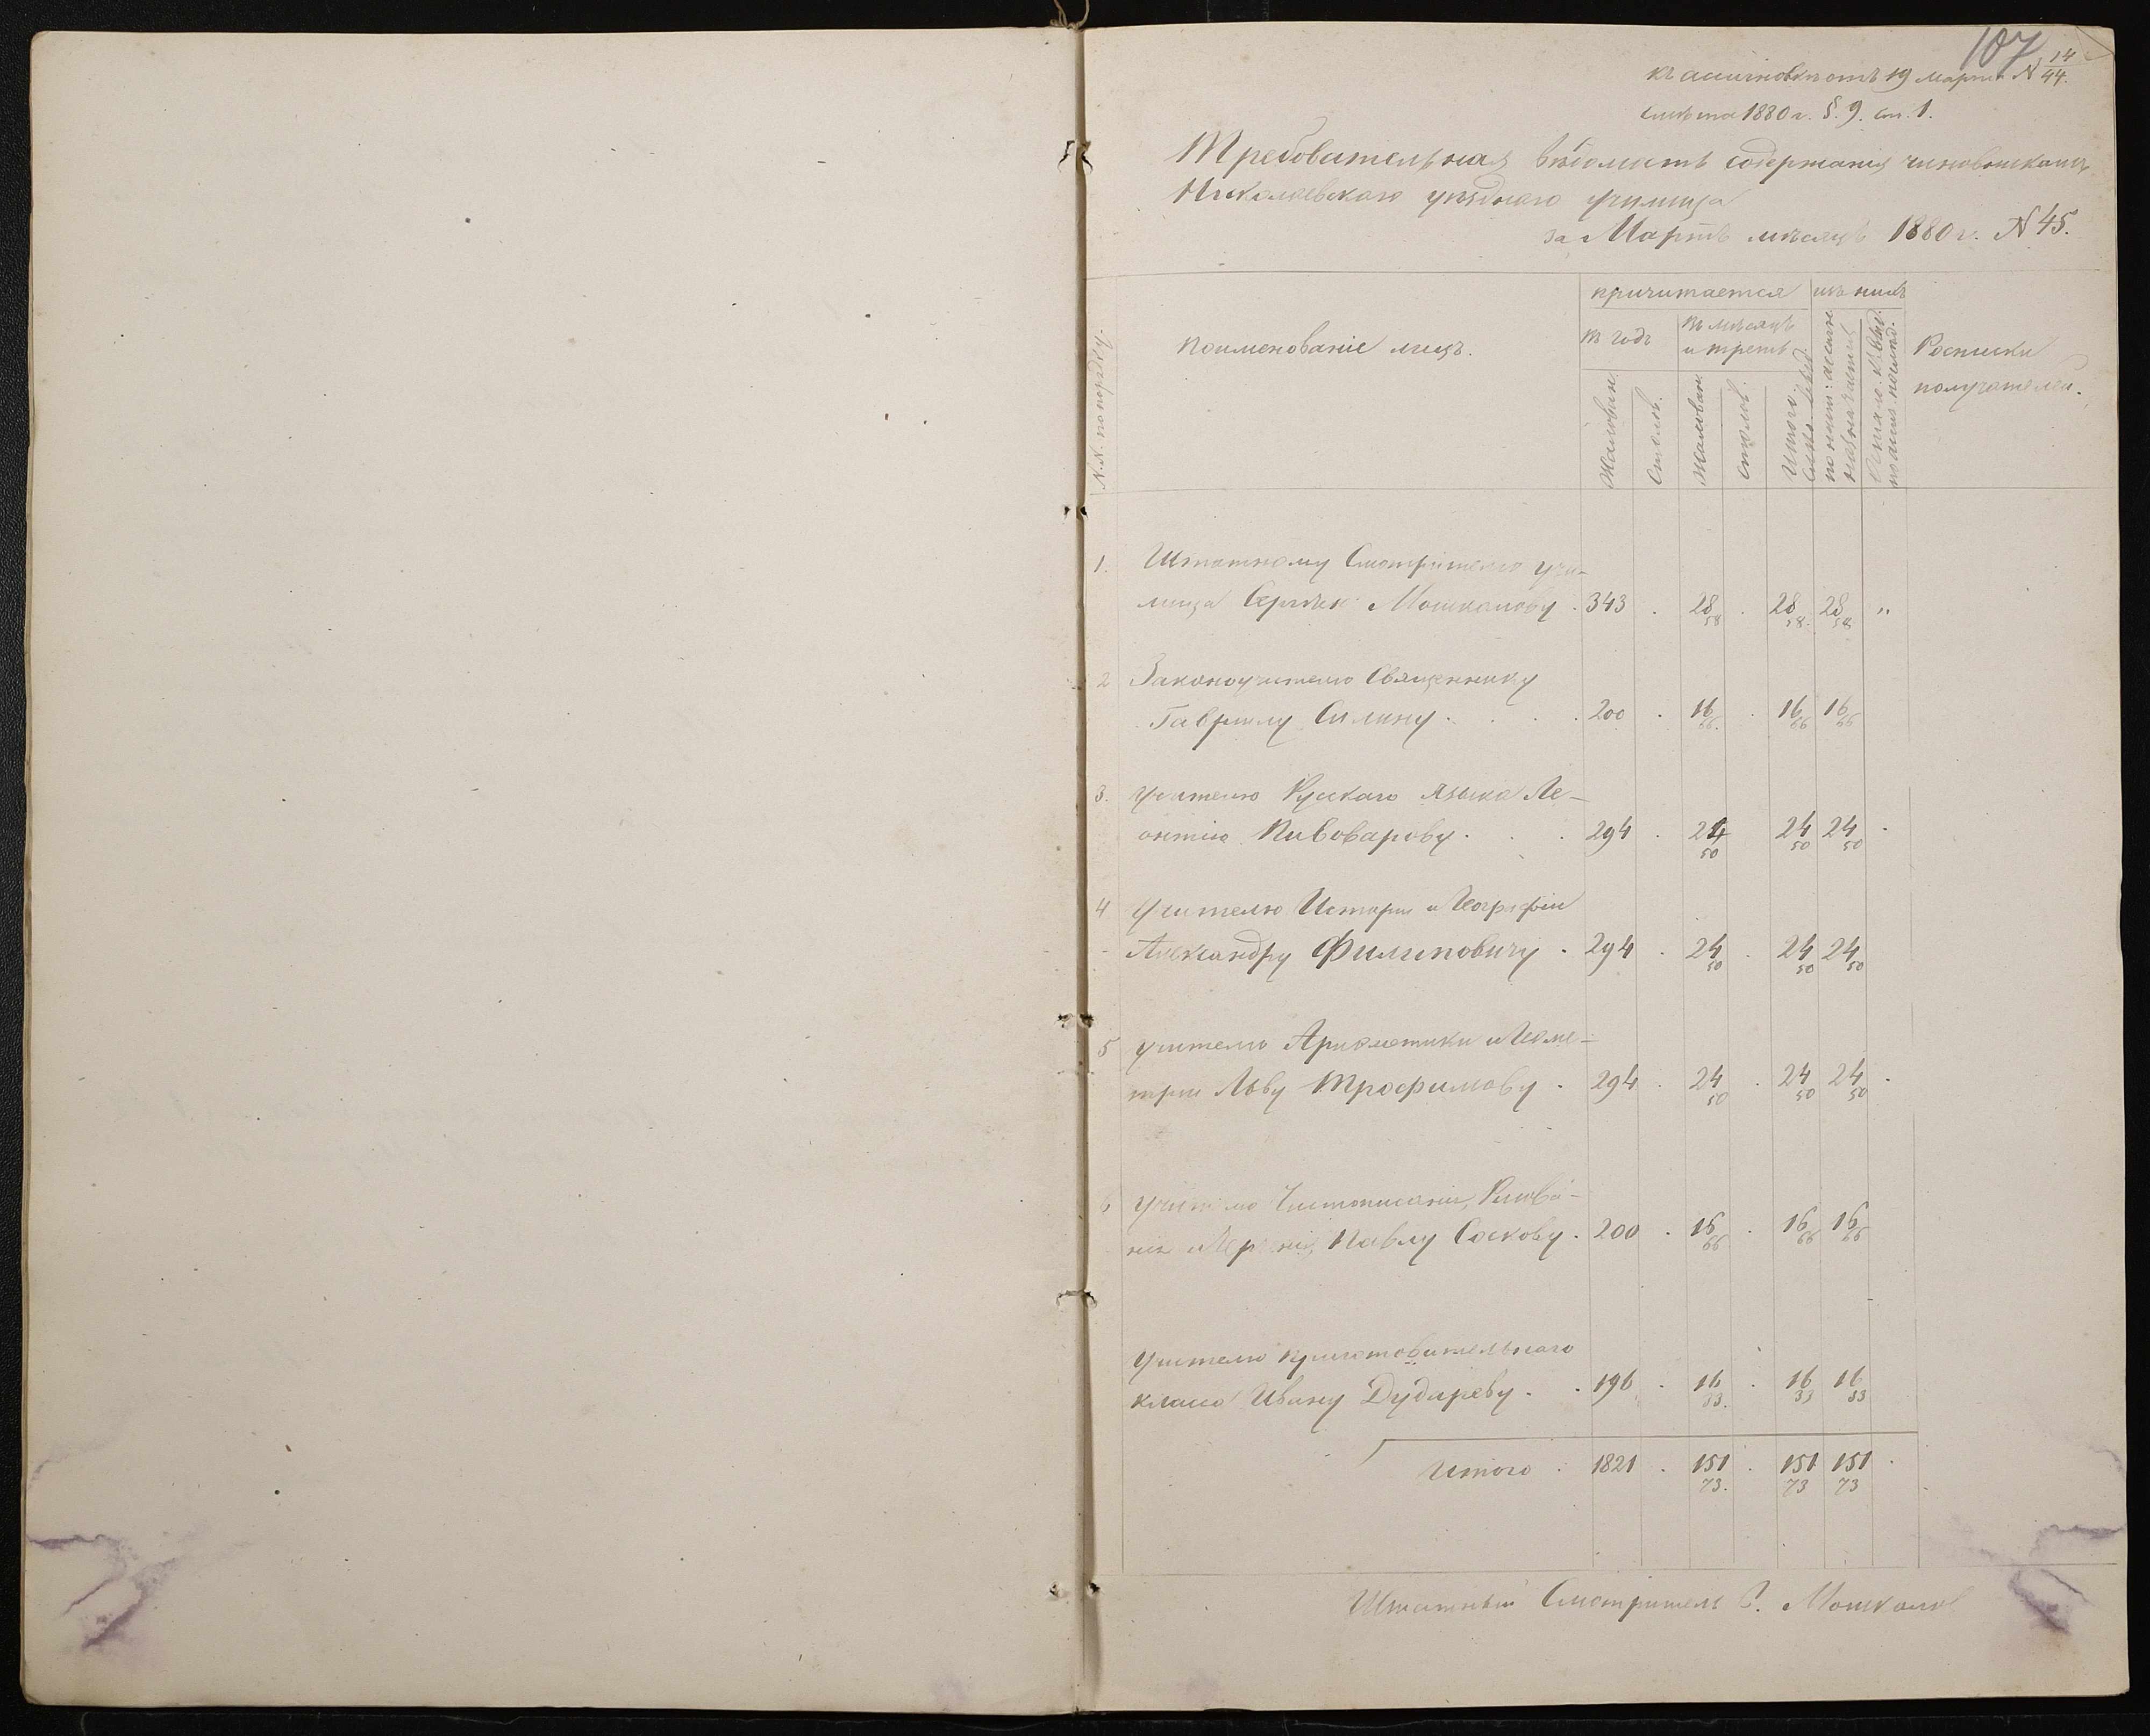 107
къ ассигновкѣ отъ 19 марта № 14/44.
смѣта 1880 г. §. 9. ст. 1.
Требовательная вѣдомость содержанія чиновникамъ
Николаевскаго уѣзднаго училища
за Мартъ мѣсяцъ 1880 г. № 45.
N.N. по порядку.
Поименованіе лицъ.
причитается
изъ нихъ
въ годъ
въ мѣсяцъ
и треть
Жалован.
Столов.
Жалован.
столов.
Итого
Росписки
получателей.
1. Штатному Смотрителю учи-
лища Сергѣю Мошкалову . 343 . 28 58 . 28 58. 28 58 "
2 Законоучителю Священнику
Гаврилу Силину . . . . 200 . 16 66. . 16 66 16 66
3. Учителю Русскаго языка Ле-
онтію Пивоварову . . . 294 . 24 50 24 50 24 50 .
4 Учителю Исторіи и Географіи
Александру Филиповичу . 294 . 24 50 . 24 50 24 50
5 учителю Ариѳметики и Геоме-
тріи Льву Трофимову . 294 . 24 50 . 24 50 24 50 .
6 Учителю Чистописанія, Рисова-
нія и Черченія Павлу Соскову . 200 . 16 66 . 16 66 16 66
Учителю приготовительнаго
класса Ивану Дудыреву . . 196 . 16 33. . 16 33 16 33
Итого . 1821 . 151 73. . 151 73 151 73 .
Штатный Смотритель С. Мошкалов